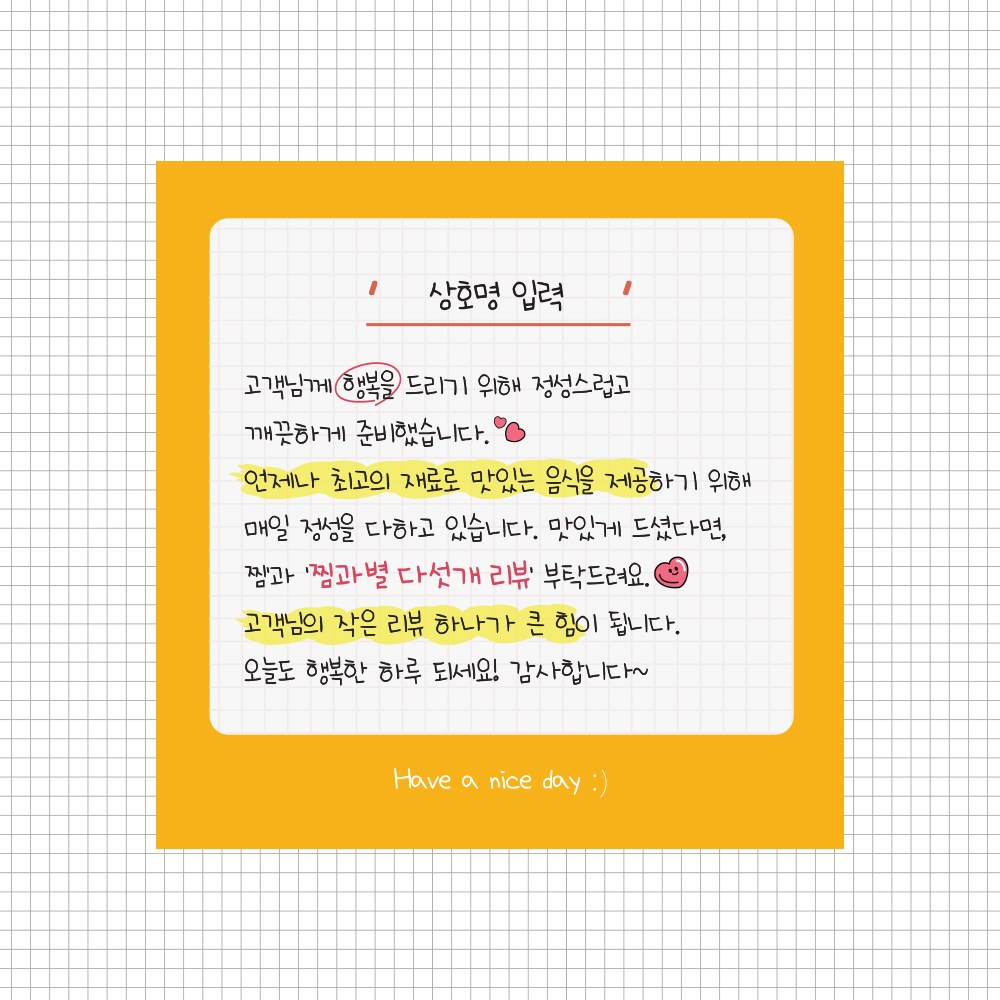 상호명 입력
고객님께 행복을 드리기 위해 정성스럽고
깨끗하게 준비했습니다.
언제나 최고의 재료로 맛있는 음식을 제공하기 위해
매일 정성을 다하고 있습니다. 맛있게 드셨다면,
찜과 '찜과별 다섯개 리뷰' 부탁드려요.
고객님의 작은 리뷰 하나가 큰 힘이 됩니다.
오늘도 행복한 하루 되세요! 감사합니다~
Have a nice day :)